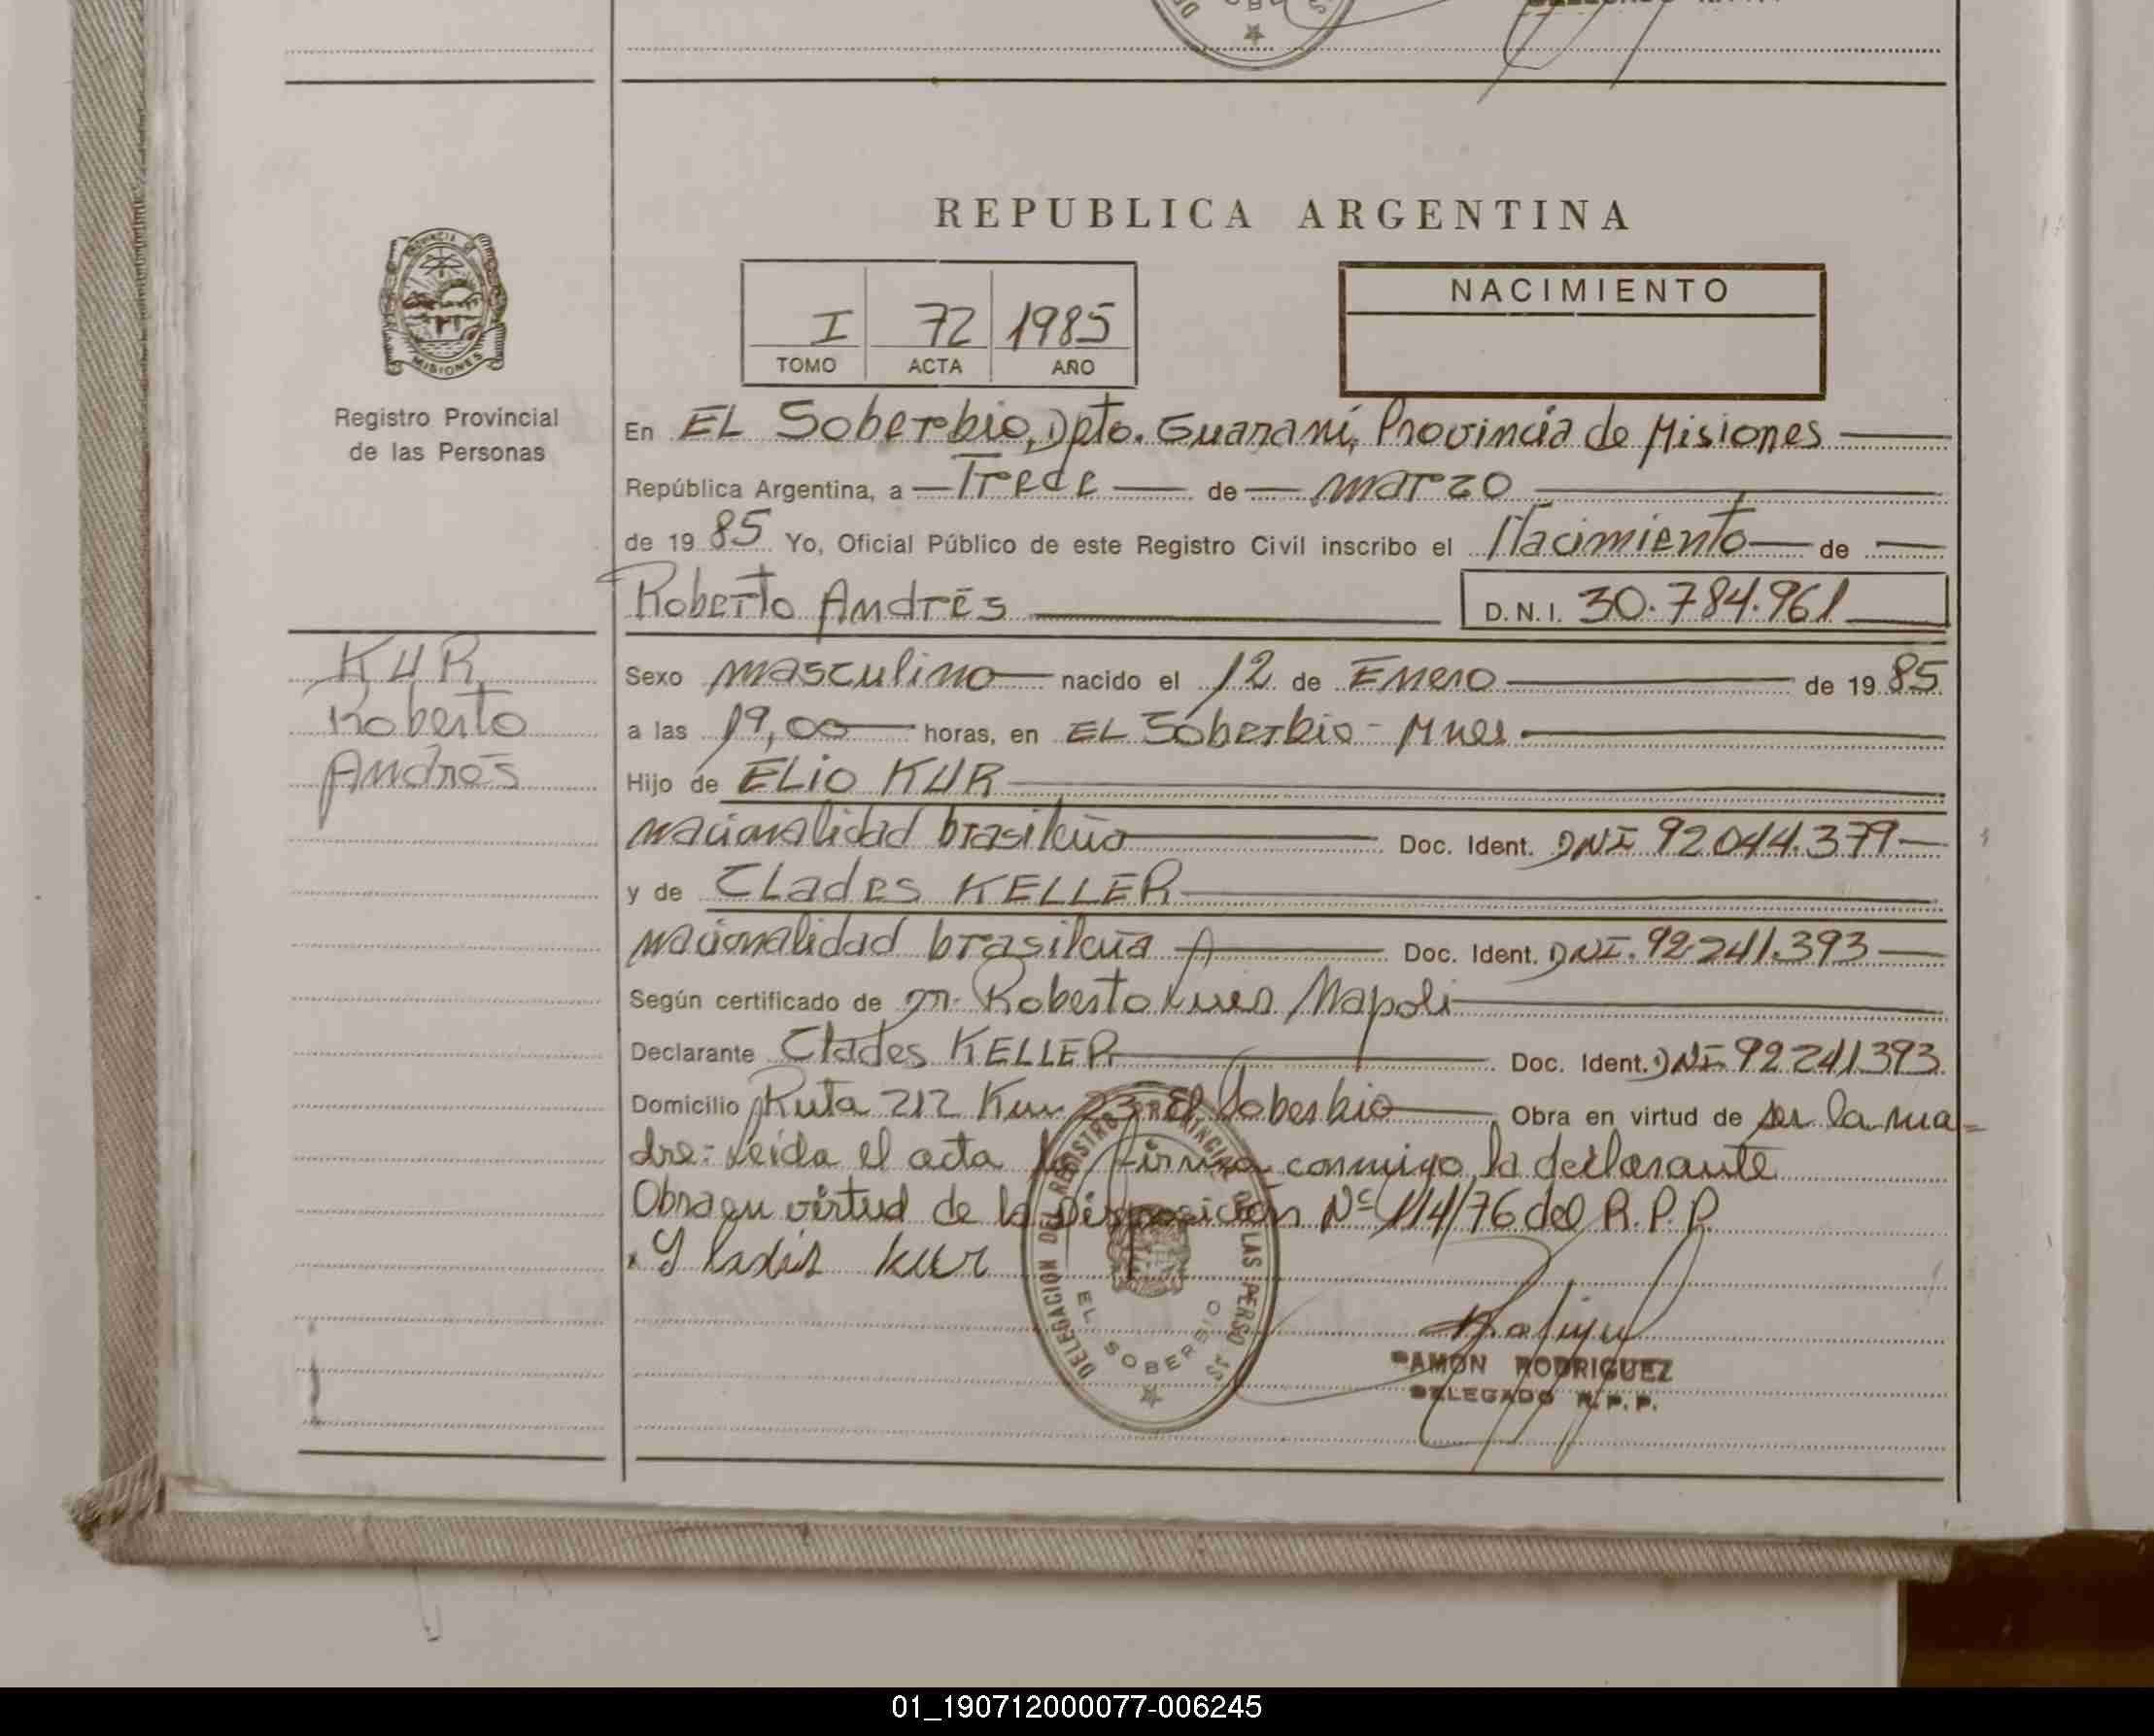 REPUBLICA ARGENTINA
PROVINCIA DE MISIONES
Registro Provincial
de las Personas
I 72 1985
TOMO ACTA AÑO
NACIMIENTO
En EL Soberbio, Dpto. Guaraní, Provincia de Misiones
República Argentina, a Trece de marzo
de 19 85 Yo, Oficial Público de este Registro Civil inscribo el Nacimiento de
Roberto Andrés D.N.I. 30.784.961
KUR
Roberto
Andrés
Sexo masculino nacido el 12 de Enero de 19 85
a las 19,00 horas, en EL Soberbio - Mnes
Hijo de ELIO KUR
nacionalidad brasileña Doc. Ident. DNI 92.044.379
y de CLades KELLER
nacionalidad brasileña Doc. Ident. DNI. 92.241.393
Según certificado de Dr. Roberto Luis Napoli
Declarante Clades KELLER Doc. Ident. DNI 92241393
Domicilio Ruta 212 Km 23 El Soberbio Obra en virtud de ser la ma-
dre= Leida el acta la firma conmigo la declarante
Obra en virtud de la Disposición Nº 114/76 del R.P.P.
x Gladis Kur
DELEGACION DEL REGISTRO PROVINCIAL DE LAS PERSONAS
EL SOBERBIO
RAMON RODRIGUEZ
DELEGADO R.P.P.
01_190712000077-006245